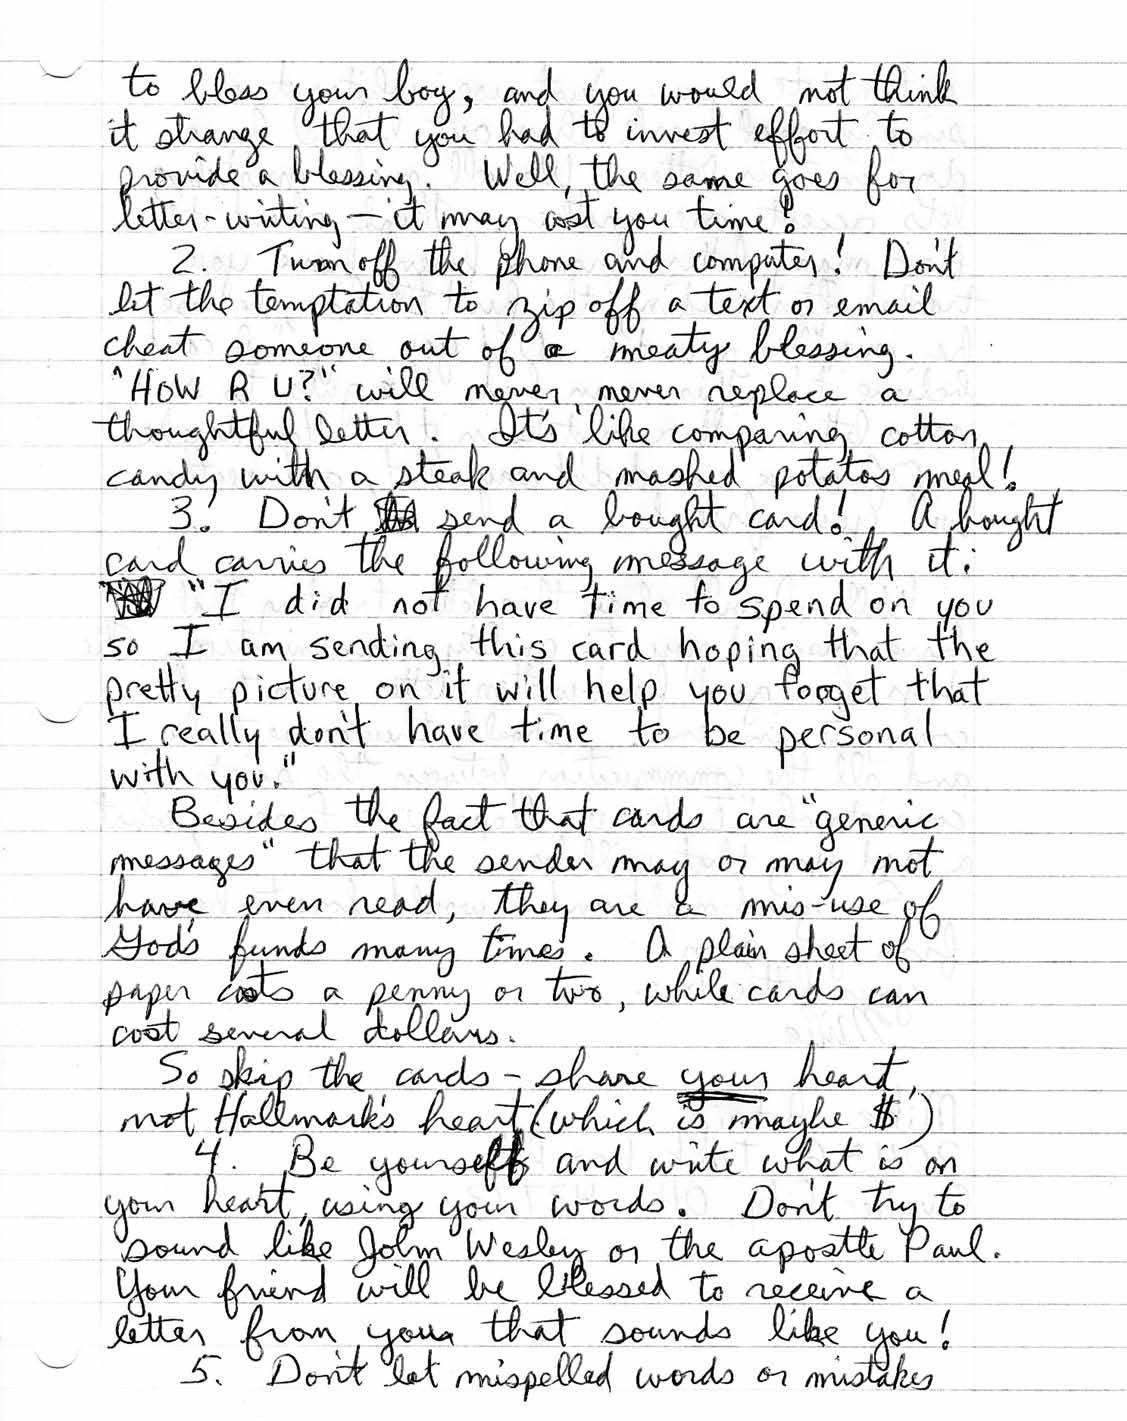 to bless your boy, and you would not think
it strange that you had to invest effort to
provide a blessing. Well, the same goes for
letter-writing - it may cost you time!
2. Turn off the phone and computer! Don't
let the temptation to zip off a text or email
cheat someone out of a meaty blessing.
"HOW R U?" will never, never replace a
thoughtful letter. It's like comparing cotton
candy with a steak and mashed potatos meal!
3. Don't send a bought card! A bought
card carries the following message with it:
"I did not have time to spend on you
so I am sending this card hoping that the
pretty picture on it will help you forget that
I really don't have time to be personal
with you."
Besides the fact that cards are "generic
messages" that the sender may or may not
have even read, they are a mis-use of
God's funds many times. A plain sheet of
paper costs a penny or two, while cards can
cost several dollars.
So skip the cards - share your heart,
not Hallmark's heart (which is maybe $)
4. Be yourself and write what is on
your heart, using your words. Don't try to
sound like John Wesley or the apostle Paul.
Your friend will be blessed to receive a
letter from you that sounds like you!
5. Don't let mispelled words or mistakes